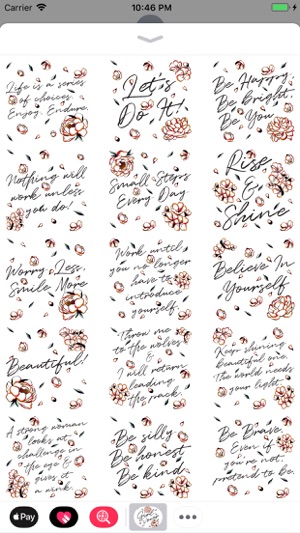 Carrier 10:46 PM
Life is a series
of choices.
Enjoy. Endure.
Let's
Do It!
Be Happy.
Be Bright.
Be You.
Nothing will
work unless
you do!
Small Steps
Every Day.
Rise
&
Shine
Worry Less,
Smile More
Work until
you no longer
have to
introduce
yourself.
Believe In
Yourself
Beautiful!
Throw me
to the wolves
&
I will return
leading
the pack.
Keep shining
beautiful one.
The world needs
your light.
A strong woman
looks at a
challenge in
the eye &
gives it
a wink.
Be silly
Be honest
Be kind
Be Brave.
Even if
you're not,
pretend to be.
Pay